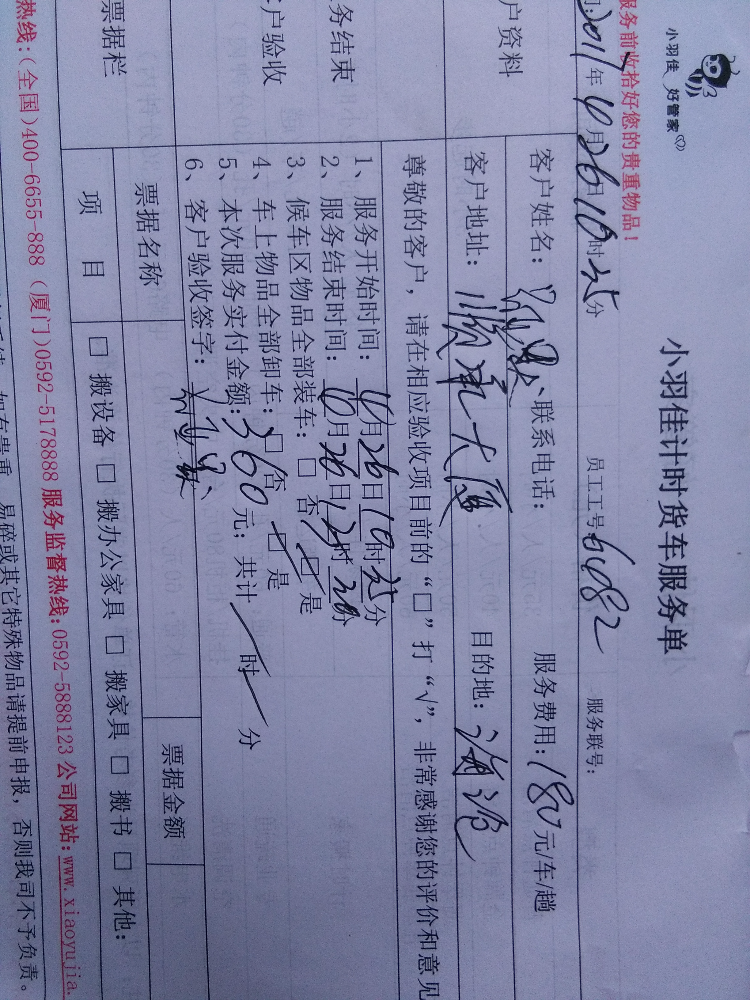 小羽佳 好管家
小羽佳计时货车服务单
服务前收拾好您的贵重物品！
2011年6月26日10时 分 员工工号6482 服务联号：
户资料
客户姓名： 联系电话： 服务费用：180元/车/趟
客户地址： 大厦 目的地：海沧
尊敬的客户，请在相应验收项目前的“□”打“√”，非常感谢您的评价和意见
务结束
户验收
1、服务开始时间：6月26日10时 分
2、服务结束时间：6月26日12时20分
3、候车区物品全部装车：□否 □是
4、车上物品全部卸车：□否 □是
5、本次服务实付金额：360元；共计 时 分
6、客户验收签字：
票据栏
票据名称 票据金额
项 目 □搬设备 □搬办公家具 □搬家具 □搬书 □其他：
热线：(全国)400-6655-888 (厦门)0592-5178888 服务监督热线：0592-5888123 公司网站：www.xiaoyujia.
如有贵重、易碎或其它特殊物品请提前申报，否则我司不予负责。